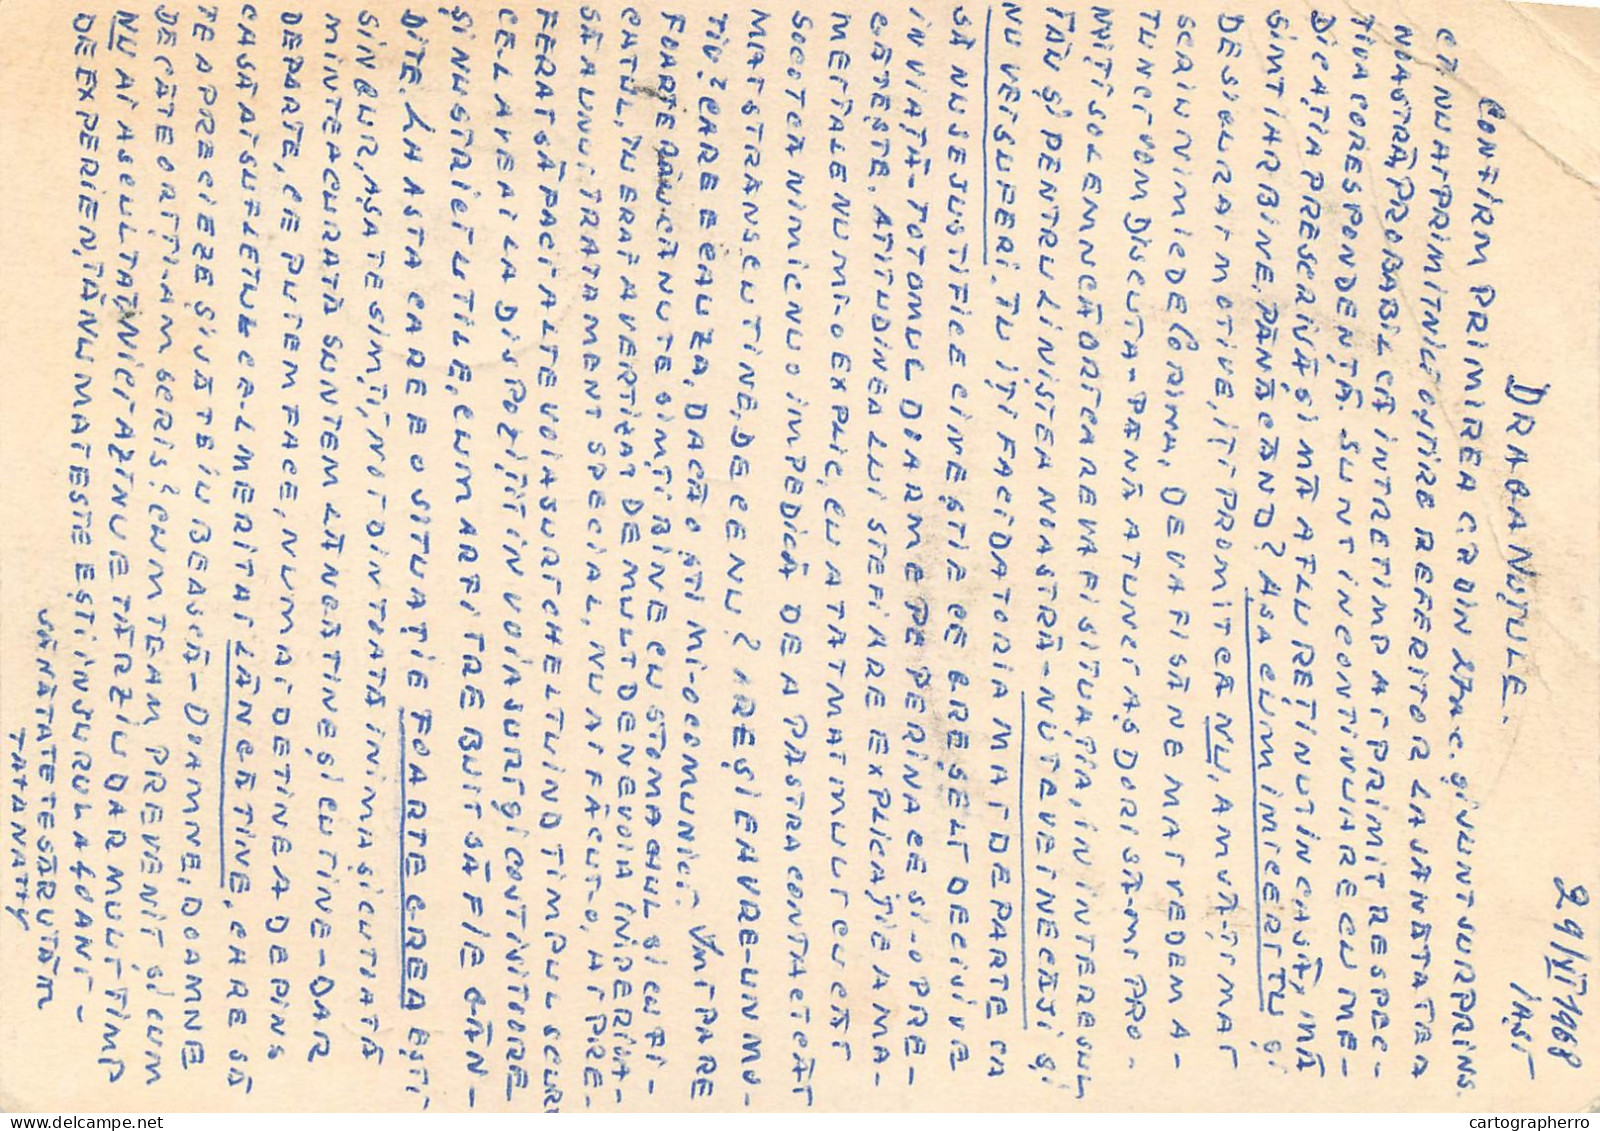 29/VI 1968
IAȘI
DRAGANUȚULE.
CONFIRM PRIMIREA C.P. DIN 27 A.C. ȘI SUNT SURPRINS
CĂ NU AI PRIMIT NICI O ȘTIRE REFERITOR LA SĂNĂTATEA
NOASTRĂ PROBABIL CĂ ÎNTRE TIMP AI PRIMIT RESPEC-
TIVA CORESPONDENȚĂ. SUNT ÎN CONTINUARE CU ME-
DICAȚIA PRESCRISĂ ȘI MĂ AFLU REȚINUT ÎN CASĂ, MĂ
SIMT IAR BINE, PÂNĂ CÂND? AȘA CUM ÎMI CERI TU ȘI
DESIGUR AI MOTIVE, ÎȚI PROMIT CĂ NU, AM VĂ-ȚI MAI
SCRIU NIMIC DE CORINA, DE VA FI SĂ NE MAI VEDEM A-
TUNCI VOM DISCUTA - PÂNĂ ATUNCI AȘ DORI SĂ-MI PRO-
MIȚI SOLEMN CĂ ORICARE VA FI SITUAȚIA, ÎN INTERESUL
TĂU ȘI PENTRU LINIȘTEA NOASTRĂ - NU TE VEI NECĂJI ȘI
NU VEI SUFERI. TU ÎȚI FACI DATORIA MAI DEPARTE CA
SĂ NU SE JUSTIFICE CINEȘTIE CE GREȘELI DECISIVE
ÎN VIAȚĂ - TOT OMUL DOARME PE PERINA CE ȘI-O PRE-
GĂTEȘTE. ATITUDINEA LUI ȘTEFI ARE EXPLICAȚIE A MA-
MEI TALE NU MI-O EXPLIC, CU ATÂT MAI MULT CU CÂT
SOCOTEA NIMIC NU O ÎMPEDICĂ DE A PĂSTRA CONTACT CÂT
MAI STRÂNS CU TINE, DE CE NU? AREȘI EA VRE-UN MO-
TIV? CARE E CAUZA, DACĂ O ȘTI MI-O COMUNICI. ÎMI PARE
FOARTE RĂU CĂ NU TE SIMȚI BINE CU STOMACHUL ȘI CU FI-
CATUL, TU ERAI AVERTIZAT DE MULT DE NEVOIA IMPERIOA-
SĂ A UNUI TRATAMENT SPECIAL, NU AI FĂCUT-O, AI PRE-
FERAT SĂ PACI ALTE VOIAJURI CHELTUIND TIMPUL SCURT
CE L AVEAI LA DISPOZIȚII ÎN VOIAJURI ȘI CONTINITOARE
ȘI NU STRICT UTILE, CUM AR FI TREBUIT SĂ FIE GÂN-
DITE. IN ASTA CARE O SITUAȚIE FOARTE GREA EȘTI
SINGUR, AȘA TE SIMȚI, NOI DIN TOATĂ INIMA ȘI CU TOATĂ
MINTEA CURATĂ SUNTEM LÂNGĂ TINE ȘI CU TINE - DAR
DEPARTE, CE PUTEM FACE, NUMAI DE TINE A DEPINS
CA SĂ AI SUFLETUL CE-L MERITAI LÂNGĂ TINE, CARE SĂ
TE APRECIEZE ȘI SĂ TE IUBEASCĂ - DOAMNE, DOAMNE
DE CÂTE ORI ȚI-AM SCRIS? CUM TE AM PREVENIT ȘI CUM
NU AI ASCULTAT, NICI AZI NU E TÂRZIU DAR MULT TIMP
DE EXPERIENȚĂ NU MAI ESTE EȘTI ÎNSURUL A 40 ANI -
SĂNĂTATE TE SĂRUTĂM
TATA NATTY
cartographerro